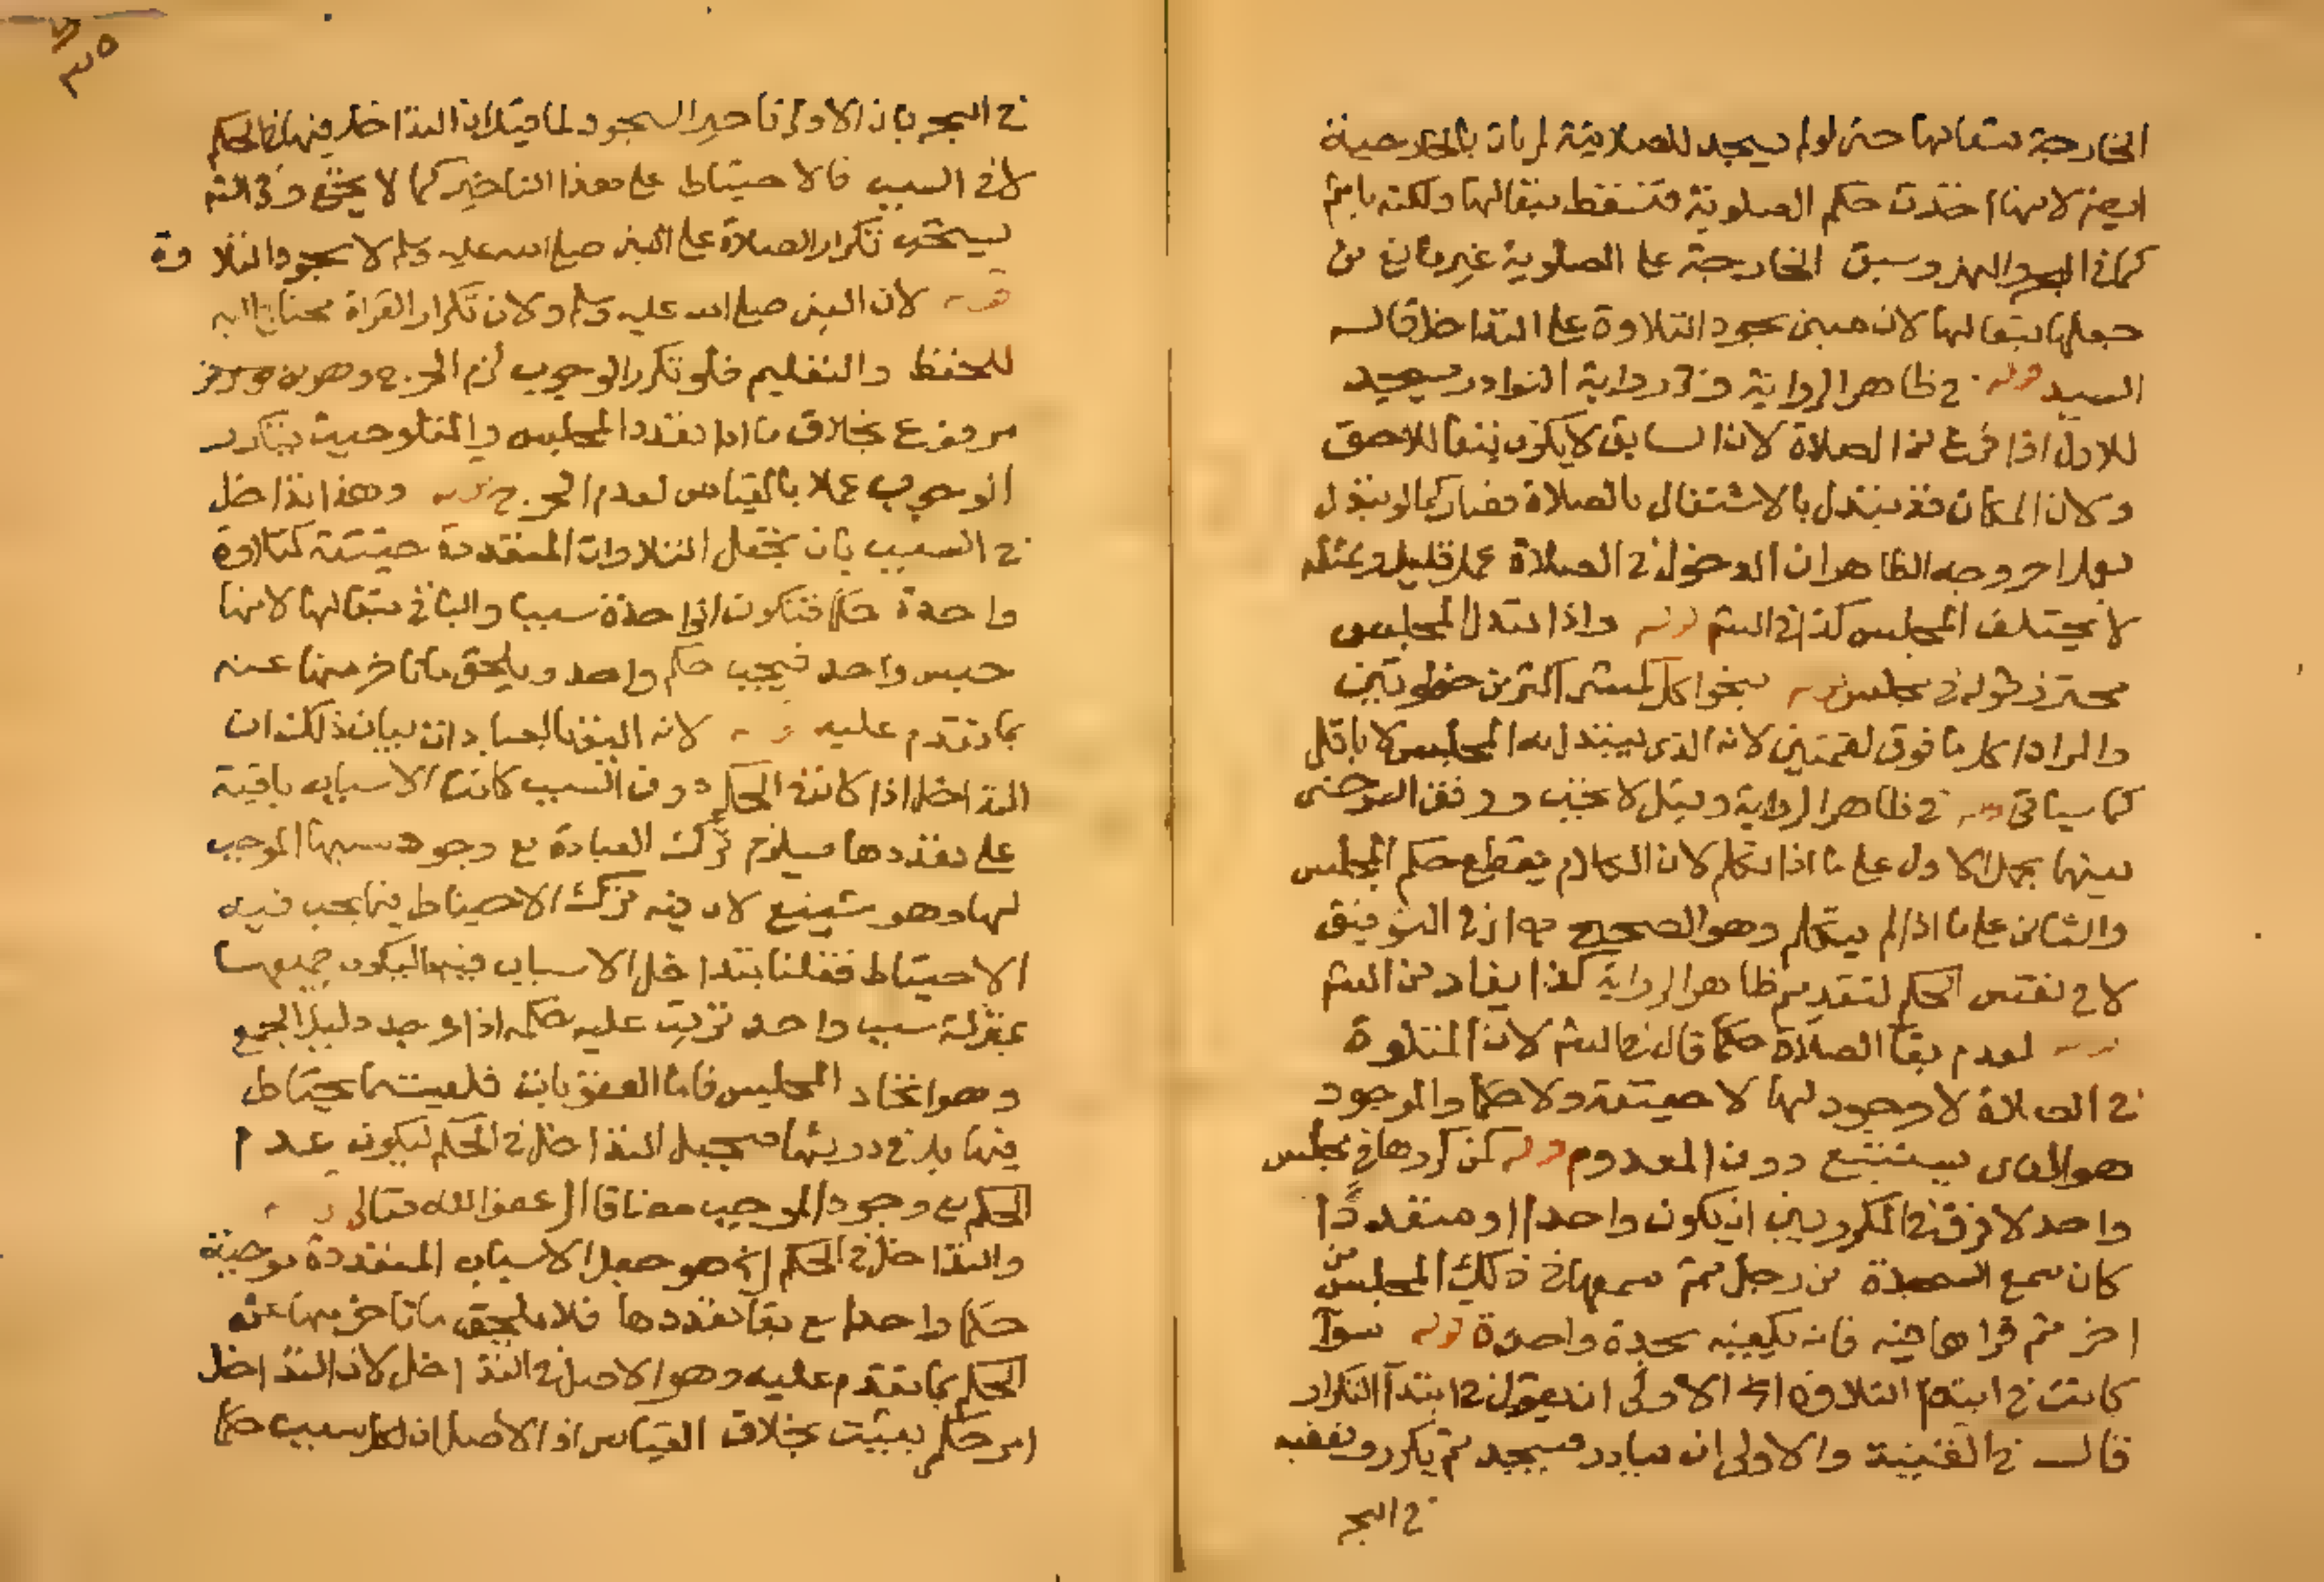 الخارجة تبعا لها حتى لو لم يسجد للصلاتية لم يات بالخارجية
ايضا لانها اخذت حكم الصلوية فتسقط تبعا لها ولكنه ياثم
كما في البحر والنهر وسبق الخارجة على الصلوية غير مانع من
جعلها تبعا لها لان مبنى سجود التلاوة على التداخل قاله
السيد قوله في ظاهر الرواية وفي رواية النوادر يسجد
للاول اذا فرغ من الصلاة لان السابق لا يكون تبعا للاحق
ولان المكان قد تبدل بالاشتغال بالصلاة فصار كما لو تبدل
بعمل اخر وجه الظاهر ان الدخول في الصلاة عمل قليل وبمثله
لا يختلف المجلس كذا في الشرح قوله واذا تبدل المجلس
محترز قوله في مجلس قوله بنحو اكل لمشي اكثر من خطوتين
والمراد اكل ما فوق لقمتين لانه الذي يتبدل به المجلس لا باقل
كما سياتي قوله في ظاهر الرواية وقيل لا تجب ووفق السرخسي
بينهما بحمل الاول على ما اذا تكلم لان الكلام يقطع حكم المجلس
والثاني على ما اذا لم يتكلم وهو الصحيح اي في التوفيق
لا في نفس الحكم لتقديم ظاهر الرواية كذا يفاد من الشرح
قوله لعدم بقاء الصلاة حكما قال في الشرح لان المتلوة
في الصلاة لا وجود لها لا حقيقة ولا حكما والموجود
هو الذي يستتبع دون المعدوم قوله كمن كررها في مجلس
واحد لا فرق في المكرر بين ان يكون واحدا او متعددا
كان سمع السجدة من رجل ثم سمعها في ذلك المجلس من
اخر ثم قراها فيه فانه يكفيه سجدة واحدة قوله سوآ
كانت في ابتداء التلاوة الخ الاولى ان يقول في ابتدآ التكرار
قال في القنية والاولى ان يبادر فيسجد ثم يكرر وتعقبه
في البحر
٣٥
في البحر بان الاولى تاخير السجود لما قيل ان التداخل فيها في الحكم
لا في السبب فالاحتياط على هذا التاخير كما لا يخفى وفي الشرح
يستحب تكرار الصلاة على النبي صلى الله عليه وسلم لا سجود التلاوة
قوله لان النبي صلى الله عليه وسلم ولان تكرار القراة محتاج اليه
للحفظ والتعليم فلو تكرر الوجوب لزم الحرج وهو
مرفوع بخلاف ما اذا تعدد المجلس والمتلو حيث يتكرر
الوجوب عملا بالقياس لعدم الحرج قوله وهذا تداخل
في السبب بان تجعل التلاوات المتعددة حقيقة كتلاوة
واحدة حكما فتكون الواحدة سببا والباقي تبعا لها لانها
جنس واحد فيجب حكم واحد ويلحق ما تاخر منها عنه
بما تقدم عليه قوله لانه اليق بالعبادات بيان ذلك ان
التداخل اذا كان في الحكم دون السبب كانت الاسباب باقية
على تعددها فيلزم ترك العبادة مع وجود سببها الموجب
لها وهو شنيع لان فيه ترك الاحتياط فيما يجب فيه
الاحتياط فقلنا بتداخل الاسباب فيها ليكون جميعها
بمنزلة سبب واحد ترتب عليه حكمه اذا وجد دليل الجمع
وهو اتحاد المجلس فاما العقوبات فليست مما يحتاط
فيها بل في درئها فيجعل التداخل في الحكم ليكون عدم
الحكم مع وجود الموجب مضافا الى عفو الله تعالى قوله
والتداخل في الحكم الخ هو جعل الاسباب المتعددة موجبة
حكما واحدا مع بقاء تعددها فلا يلحق ما تاخر منها عن
الحكم بما تقدم عليه وهو الاصل في التداخل لان التداخل
امر حكمي يثبت بخلاف القياس اذ الاصل ان لكل سبب حكما